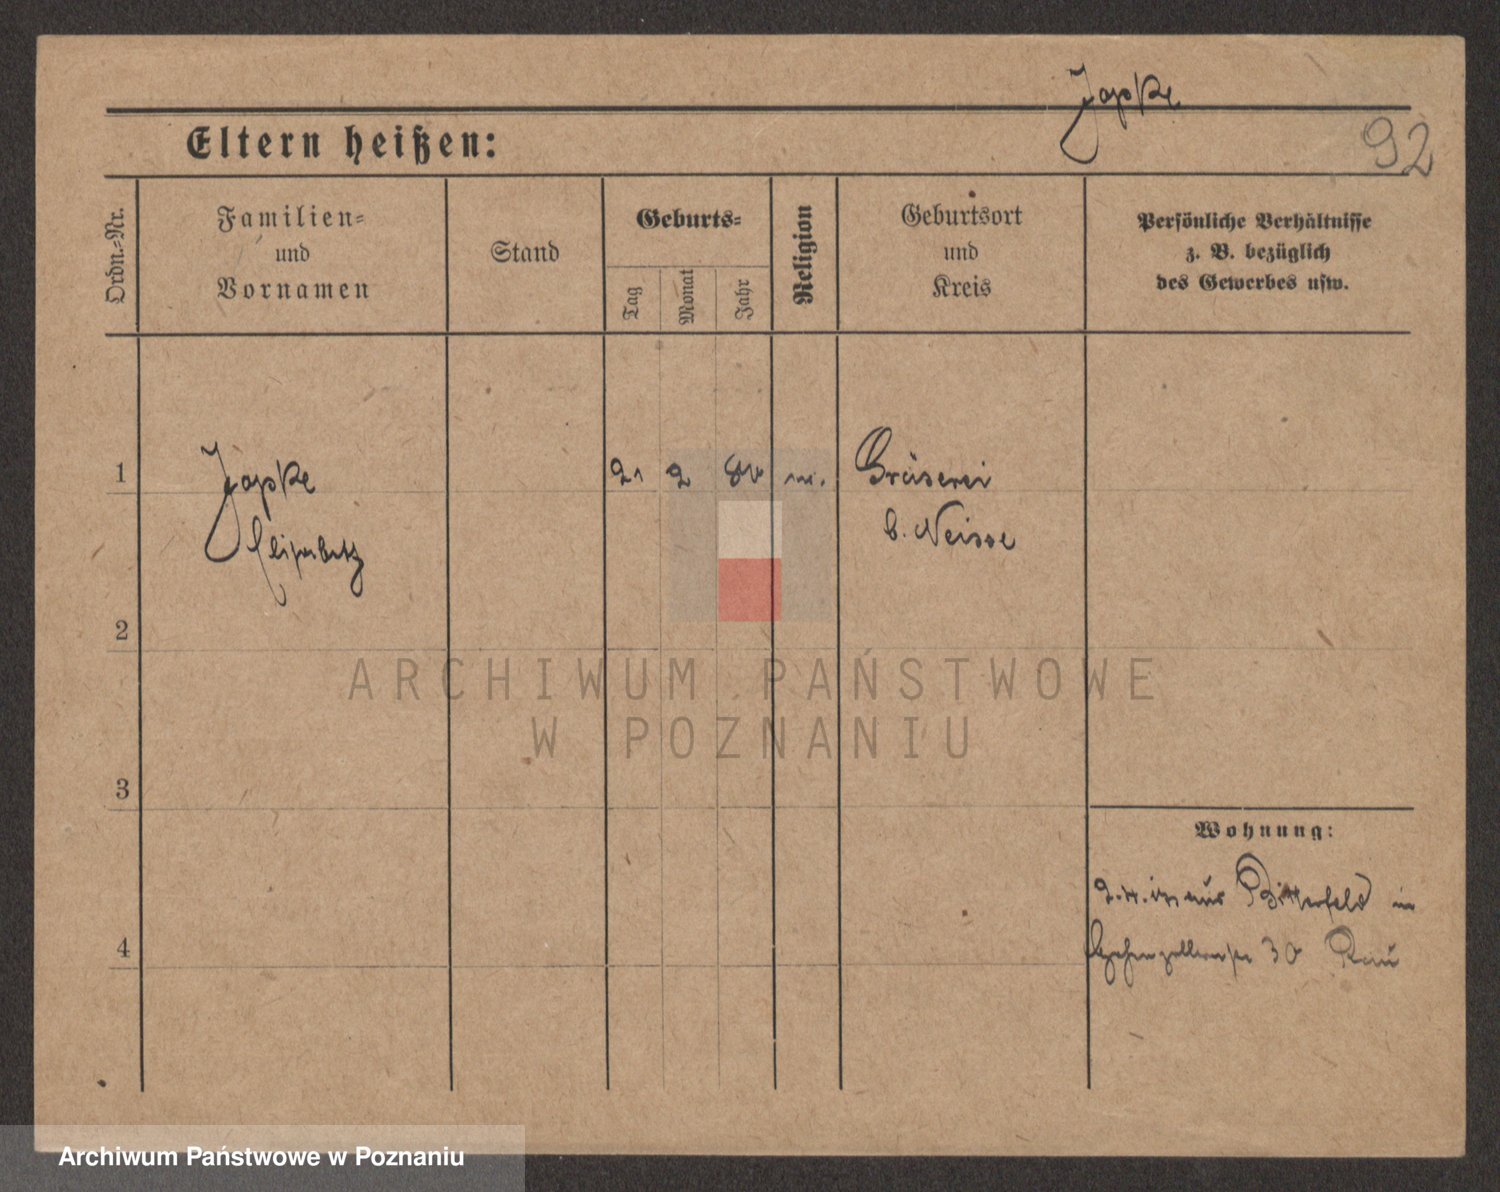 Japke
92
Eltern heißen:
Ordn.-Nr.
Familien-
und
Vornamen
Stand
Geburts-
Tag
Monat
Jahr
Religion
Geburtsort
und
Kreis
Persönliche Verhältnisse
z. B. bezüglich
des Gewerbes usw.
1
Japke
Elisabeth
21
2
Gräserei
b. Neisse
2
ARCHIWUM PAŃSTWOWE
W POZNANIU
3
Wohnung:
aus Bitterfeld in
4
Hohenzollernstr 30
Archiwum Państwowe w Poznaniu